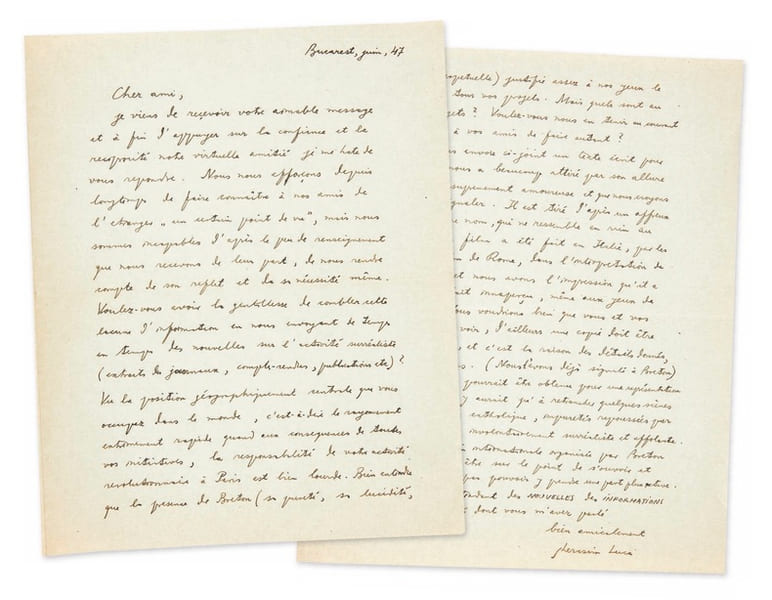 Bucarest, juin, 47
Cher ami,
je viens de recevoir votre aimable message
et à fin d'appuyer sur la confiance et la
reciprocité notre virtuelle amitié je me hate de
vous repondre. Nous nous efforçons depuis
longtemps de faire connaître à nos amis de
l'etranger „un certain point de vue", mais nous
sommes incapables d'après le peu de renseignement
que nous recevons de leur part, de nous rendre
compte de son reflet et de sa nécessité même.
Voulez-vous avoir la gentillesse de combler cette
lacune d'information en nous envoyant de temps
en temps des nouvelles sur l'activité surréaliste
(extraits de journaux, compte-rendus, publications etc)?
Vu la position géographiquement centrale que vous
occupez dans le monde, c'est-à-dire le rayonnement
extrêmement rapide quand aux consequences de toutes
vos initiatives, la responsabilité de votre activité
revolutionnaire à Paris est bien lourde. Bien entendu
que la presence de Breton (sa pureté, sa lucidité,
perpetuelle) justifie assez à nos yeux le
tous vos projets. Mais quels sont au
Voulez-vous nous en tenir au courant
à vos amis de faire autant?
envoie ci-joint un texte écrit pour
nous a beaucoup attiré par son allure
suprement amoureuse et que nous croyons
Il est tiré d'après un affreux
nom, qui ne ressemble en rien au
film a été fait en Italie, par les
de Rome, dans l'interprétation de
et nous avons l'impression qu'il a
inaperçu, même aux yeux de
voudrions bien que vous et vos
voir, d'ailleurs une copie doit être
et c'est la raison des détails donnés,
(Nous l'avons déjà signalé à Breton)
pourrait être obtenue pour une représentation
aurait qu'à retrancher quelques scènes
catholique, impuretés repoussées par
involontairement surréaliste et affolante.
internationale organisée par Breton
être sur le point de s'ouvrir et
pas pouvoir y prendre une part plus active.
attendant des NOUVELLES des INFORMATIONS
dont vous m'avez parlé
bien amicalement
Gherasim Luca